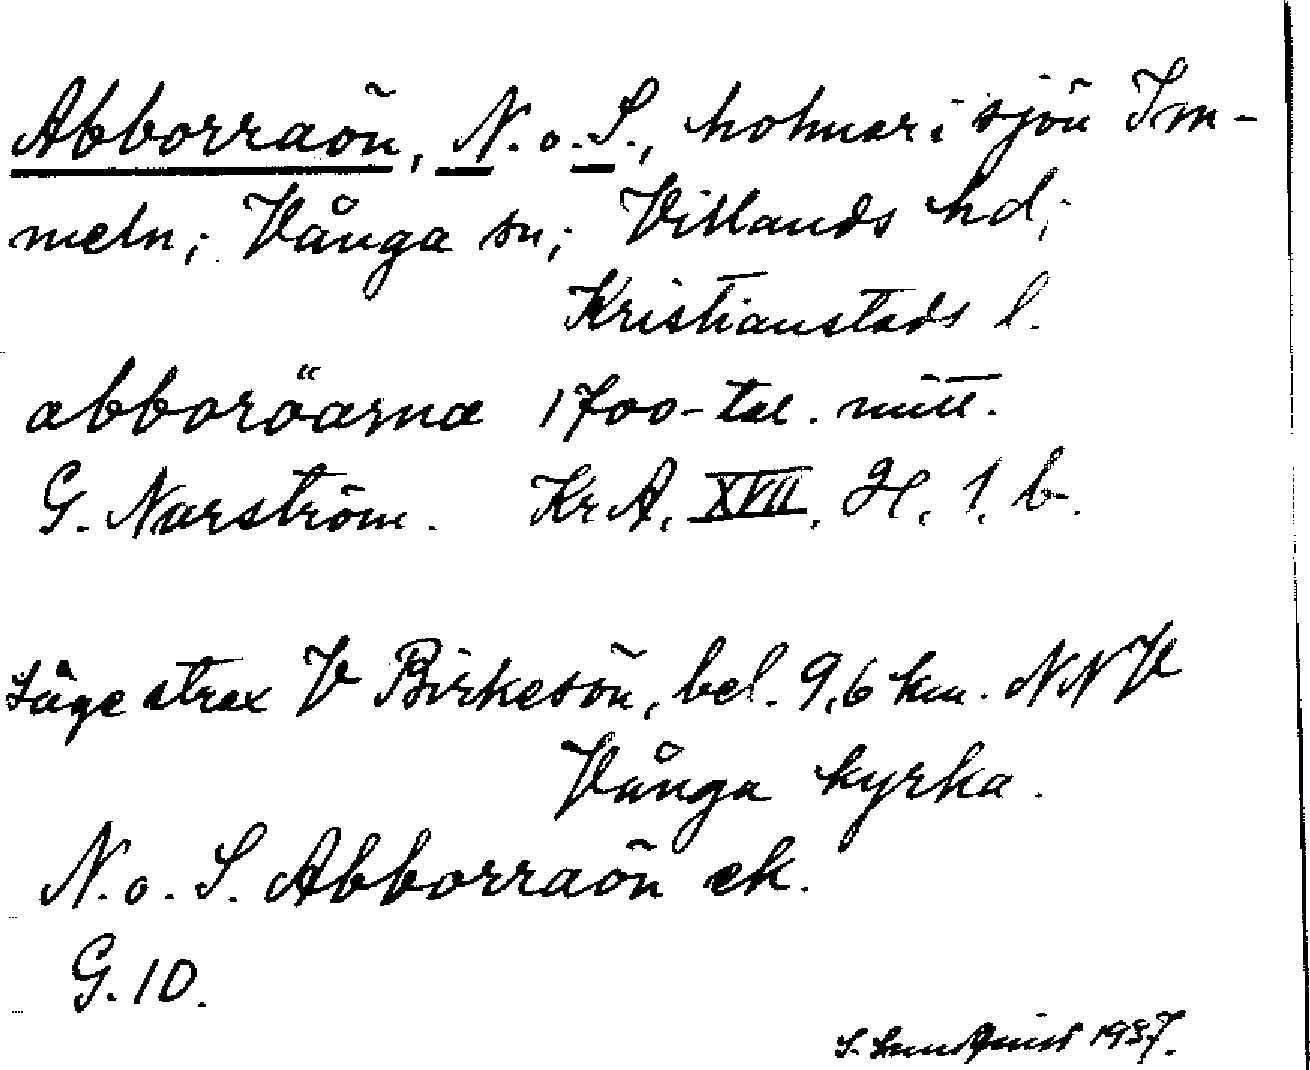 Abborraön, N. o. S., holmar i sjön Im-
meln; Vånga sn; Villands hd;
Kristianstads l.
abboröarna 1700-tal. mitt.
G. Narström. Kr. A. XVII, H. 1. b.
Läge strax V Birkesön, bel. 9,6 km. NNV
Vånga kyrka.
N. o. S. Abborraön ek.
G. 10.
S. Lundquist 1937.